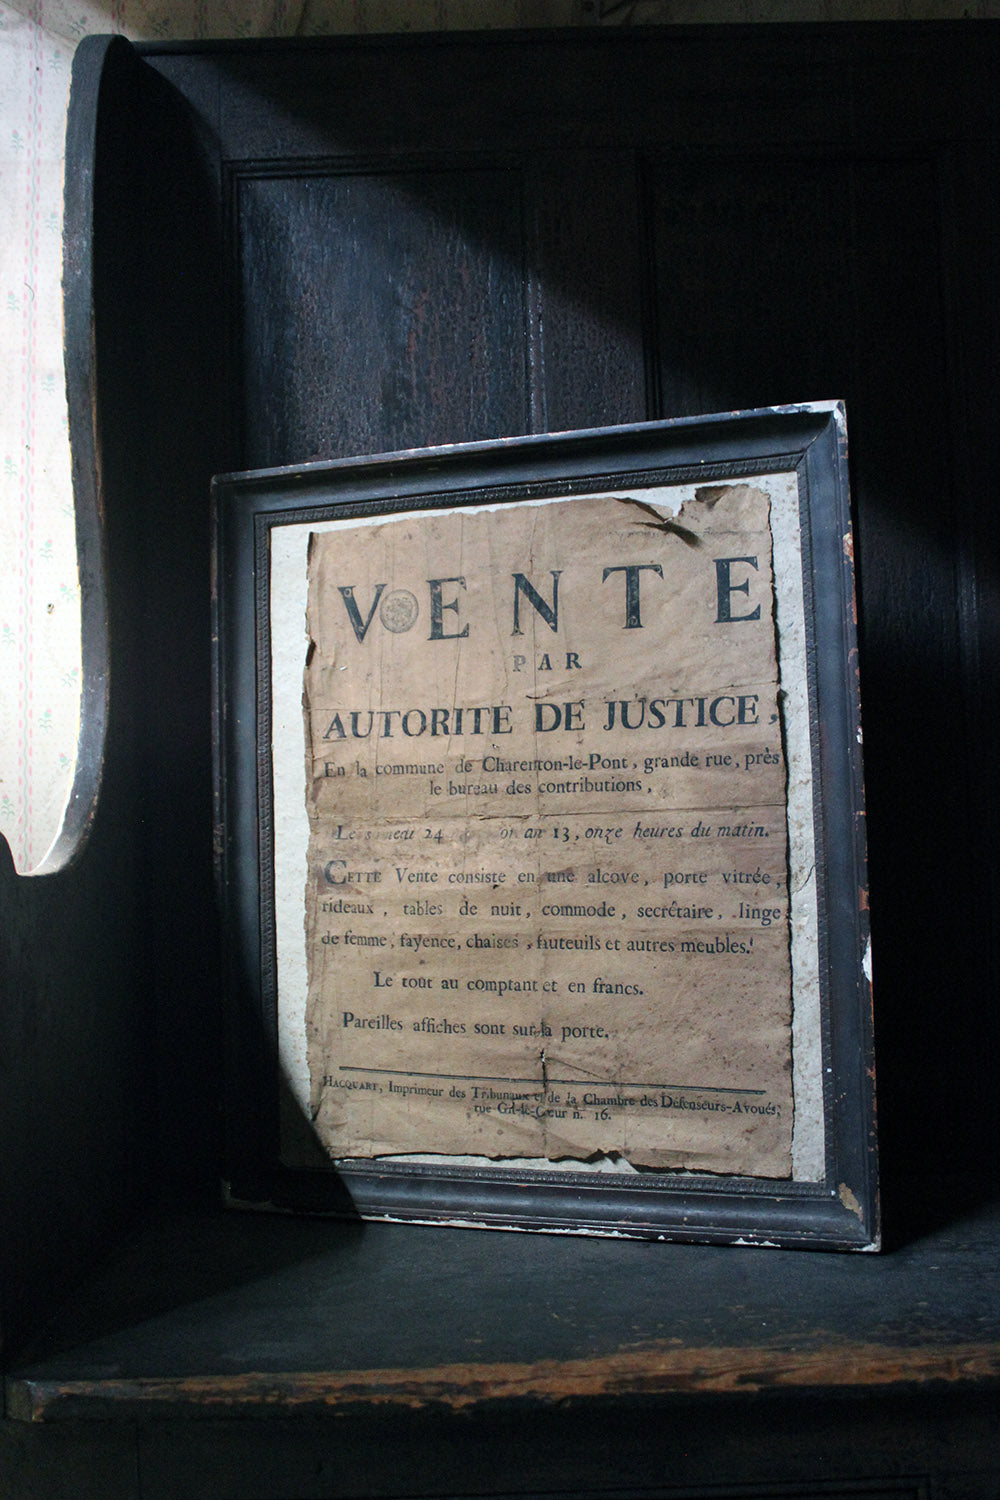 VENTE
PAR
AUTORITE DE JUSTICE,
En la commune de Charenton-le-Pont, grande rue, près
le bureau des contributions,
Le 24 an 13, onze heures du matin.
CETTE Vente consiste en une alcove, porte vitrée,
rideaux, tables de nuit, commode, secrétaire, linge
de femme, fayence, chaises, fauteuils et autres meubles.
Le tout au comptant et en francs.
Pareilles affiches sont sur la porte.
HACQUART, Imprimeur des Tribunaux et de la Chambre des Défenseurs-Avoués,
rue Gît-le-Cœur n. 16.